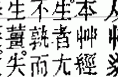 本艸經
生者尤
不孰而
生薑失